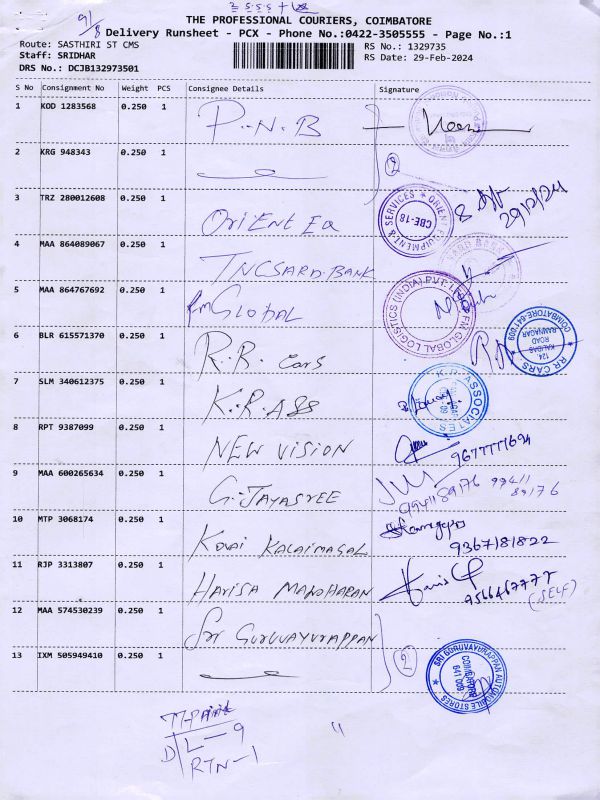 9/8
THE PROFESSIONAL COURIERS, COIMBATORE
Delivery Runsheet - PCX - Phone No.:0422-3505555 - Page No.:1
Route: SASTHIRI ST CMS RS No.: 1329735
Staff: SRIDHAR RS Date: 29-Feb-2024
DRS No.: DCJB132973501
S No Consignment No Weight PCS Consignee Details Signature
1 KOD 1283568 0.250 1 P.N.B
2 KRG 948343 0.250 1 2
3 TRZ 280012608 0.250 1 ORIENT Eq ORIENT EQUIPMENT & SERVICES CBE-18 29/2/24
4 MAA 864089067 0.250 1 TNCSARD.BANK
5 MAA 864767692 0.250 1 FM GLOBAL FM GLOBAL LOGISTICS (INDIA) PVT. LTD.
6 BLR 615571370 0.250 1 R.R cars RR CARS 124, KALIDAS ROAD RAMNAGAR COIMBATORE-641 009
7 SLM 340612375 0.250 1 K.R.ASS K.R. ASSOCIATES
8 RPT 9387099 0.250 1 NEW VISION 9677771694
9 MAA 600265634 0.250 1 G.JAYASREE 9941189176 99411 89176
10 MTP 3068174 0.250 1 KOVAI KALAIMAGAL 9367181822
11 RJP 3313807 0.250 1 HARISA MANOHARAN 9566467777 (SELF)
12 MAA 574530239 0.250 1 SRI GURUVAYURAPPAN
13 IXM 505949410 0.250 1 2 SRI GURUVAYURAPPAN AUTOMOBILE STORES COIMBATORE 641 009
DL-9
RTN-1